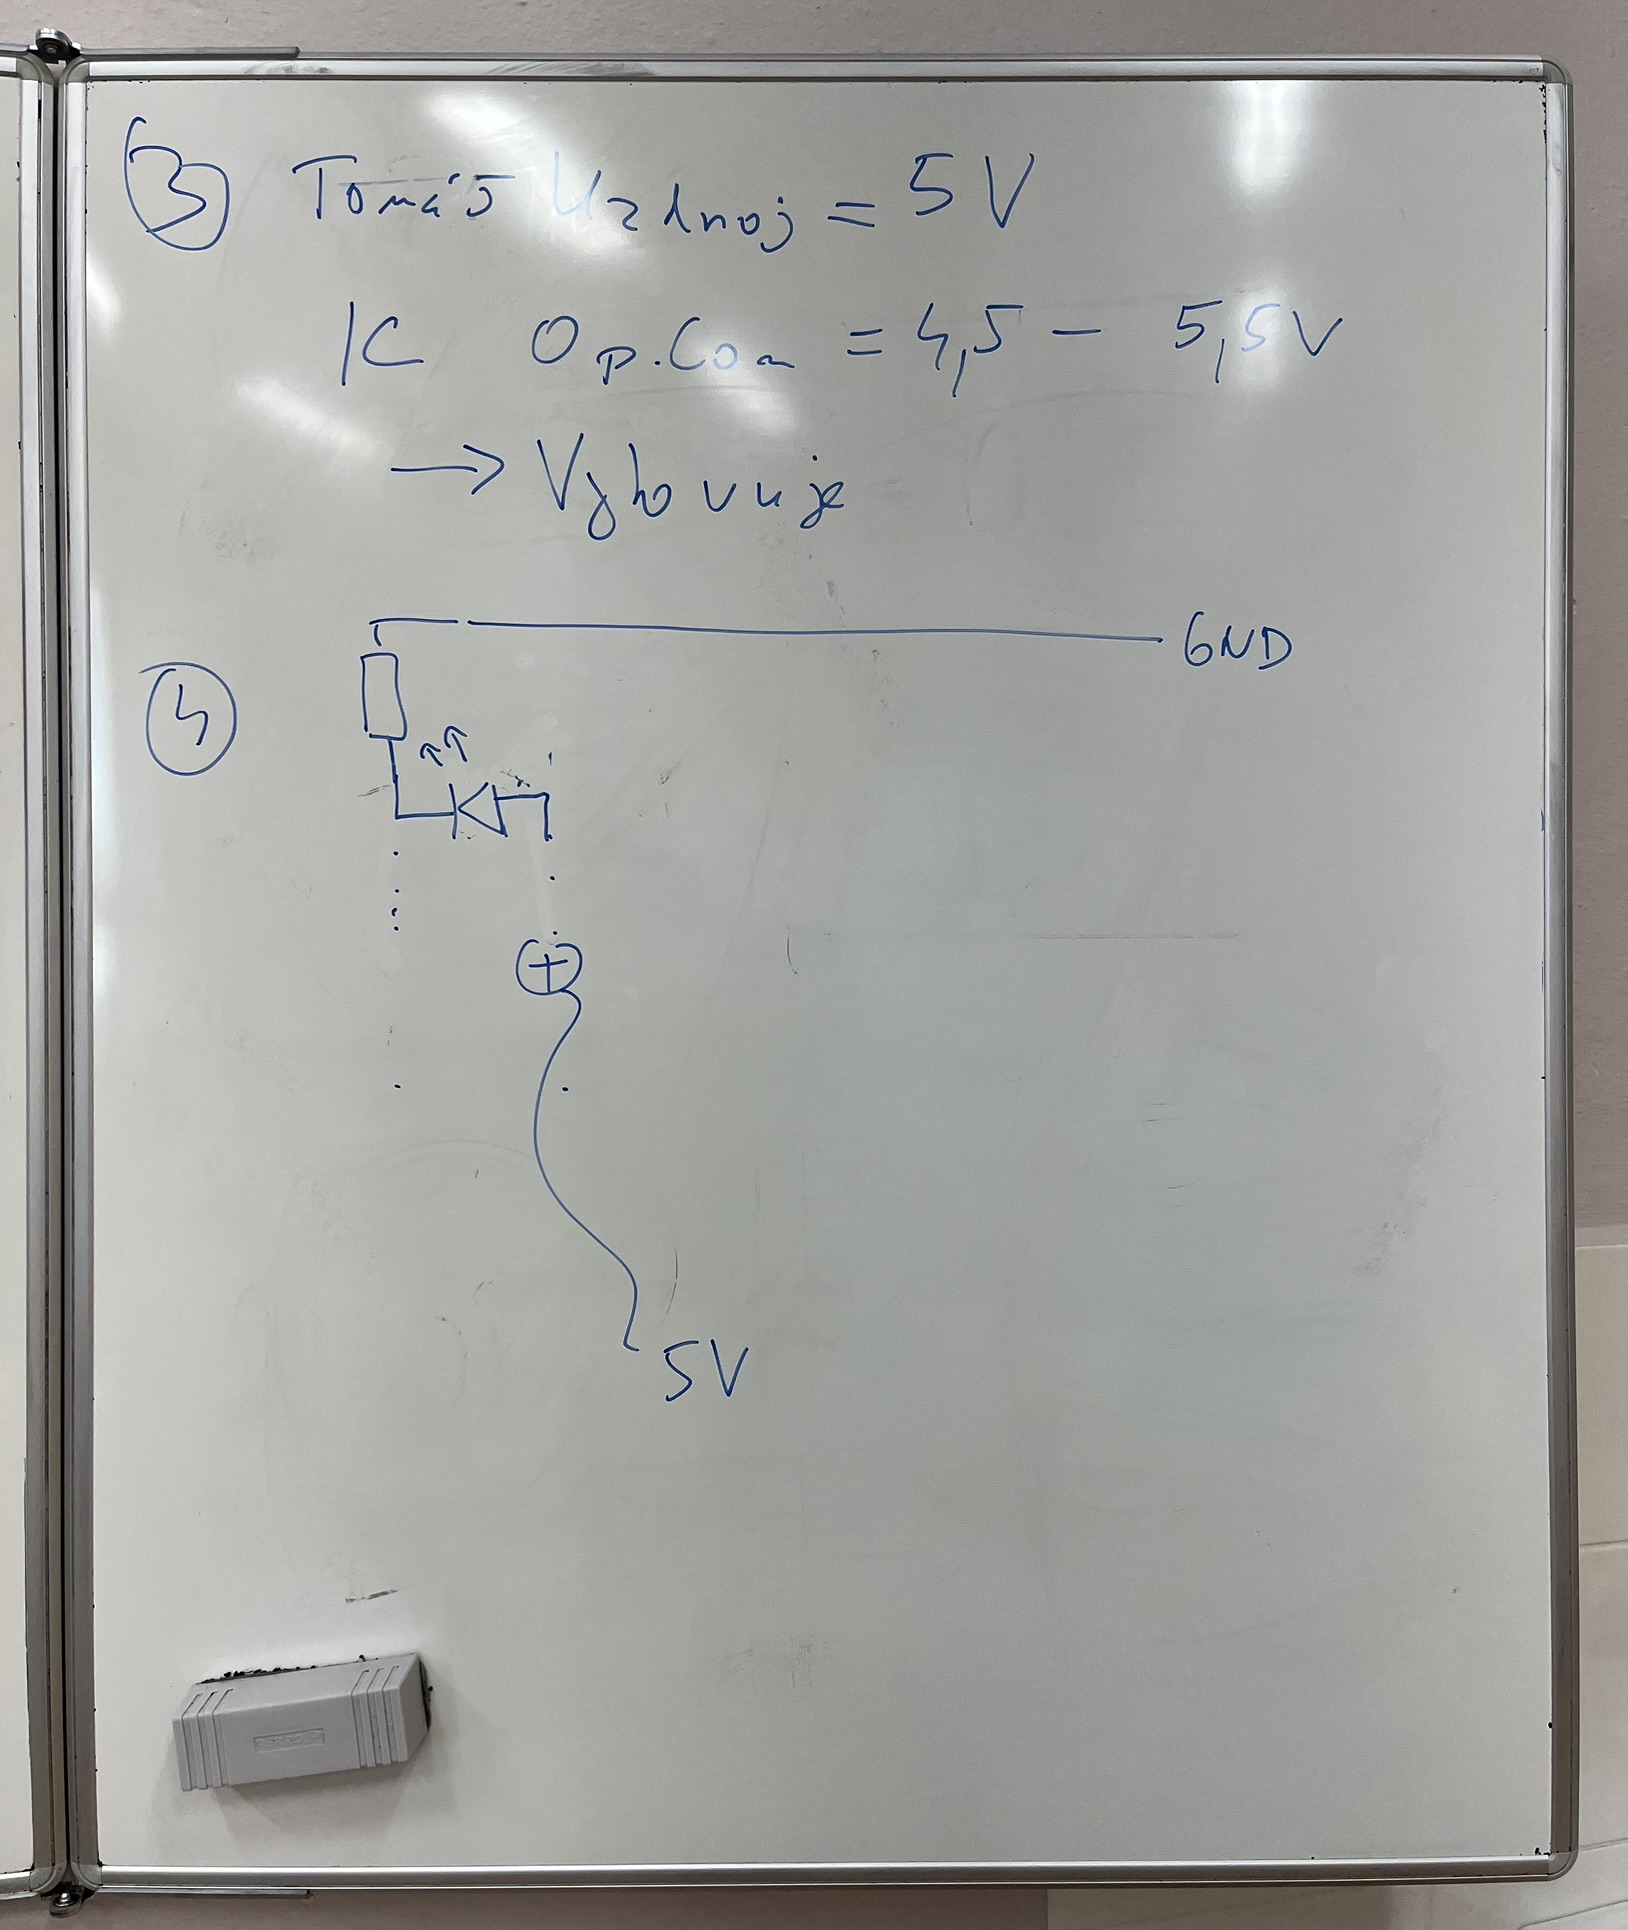 3 Tomáš Uzdroj = 5V
IC Op. Con = 4,5 - 5,5V
→ Vyhovuje
GND
4
+
5V